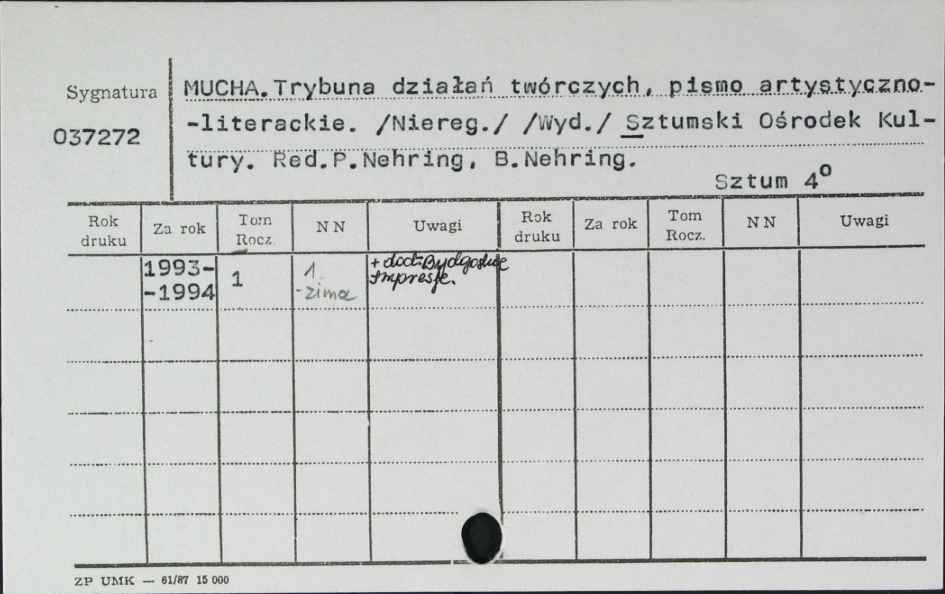 Sygnatura
037272
MUCHA.Trybuna działań twórczych, pismo artystyczno-
-literackie. /Niereg./ /Wyd./ Sztumski Ośrodek Kul-
tury. Red.P.Nehring, B.Nehring.
Sztum 4º
Rok druku Za rok Tom Rocz. N N Uwagi Rok druku Za rok Tom Rocz. N N Uwagi
1993- 1 1 + dod: Bydgoskie
-1994 -zima Impresje.
ZP UMK — 61/87 15 000